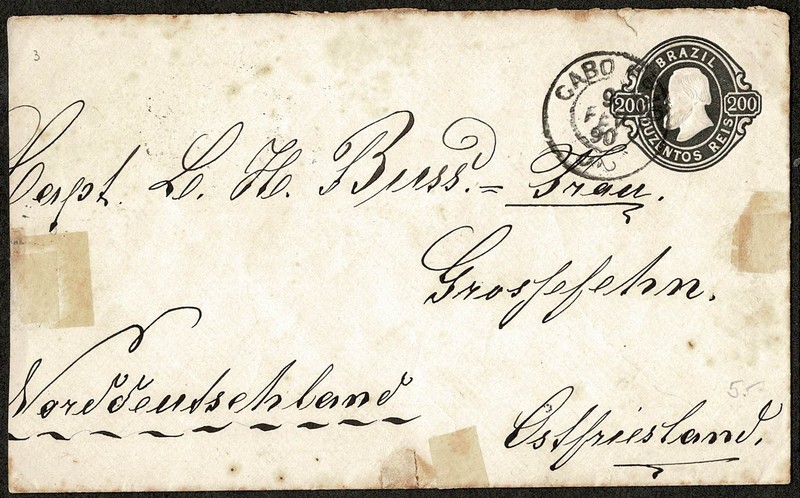 3
BRAZIL
200 200
DUZENTOS REIS
CABO
9
FEV
90
Capt. L. H. Buss.= Frau.
Grossefehn.
Norddeutschland
5.-
Ostfriesland.